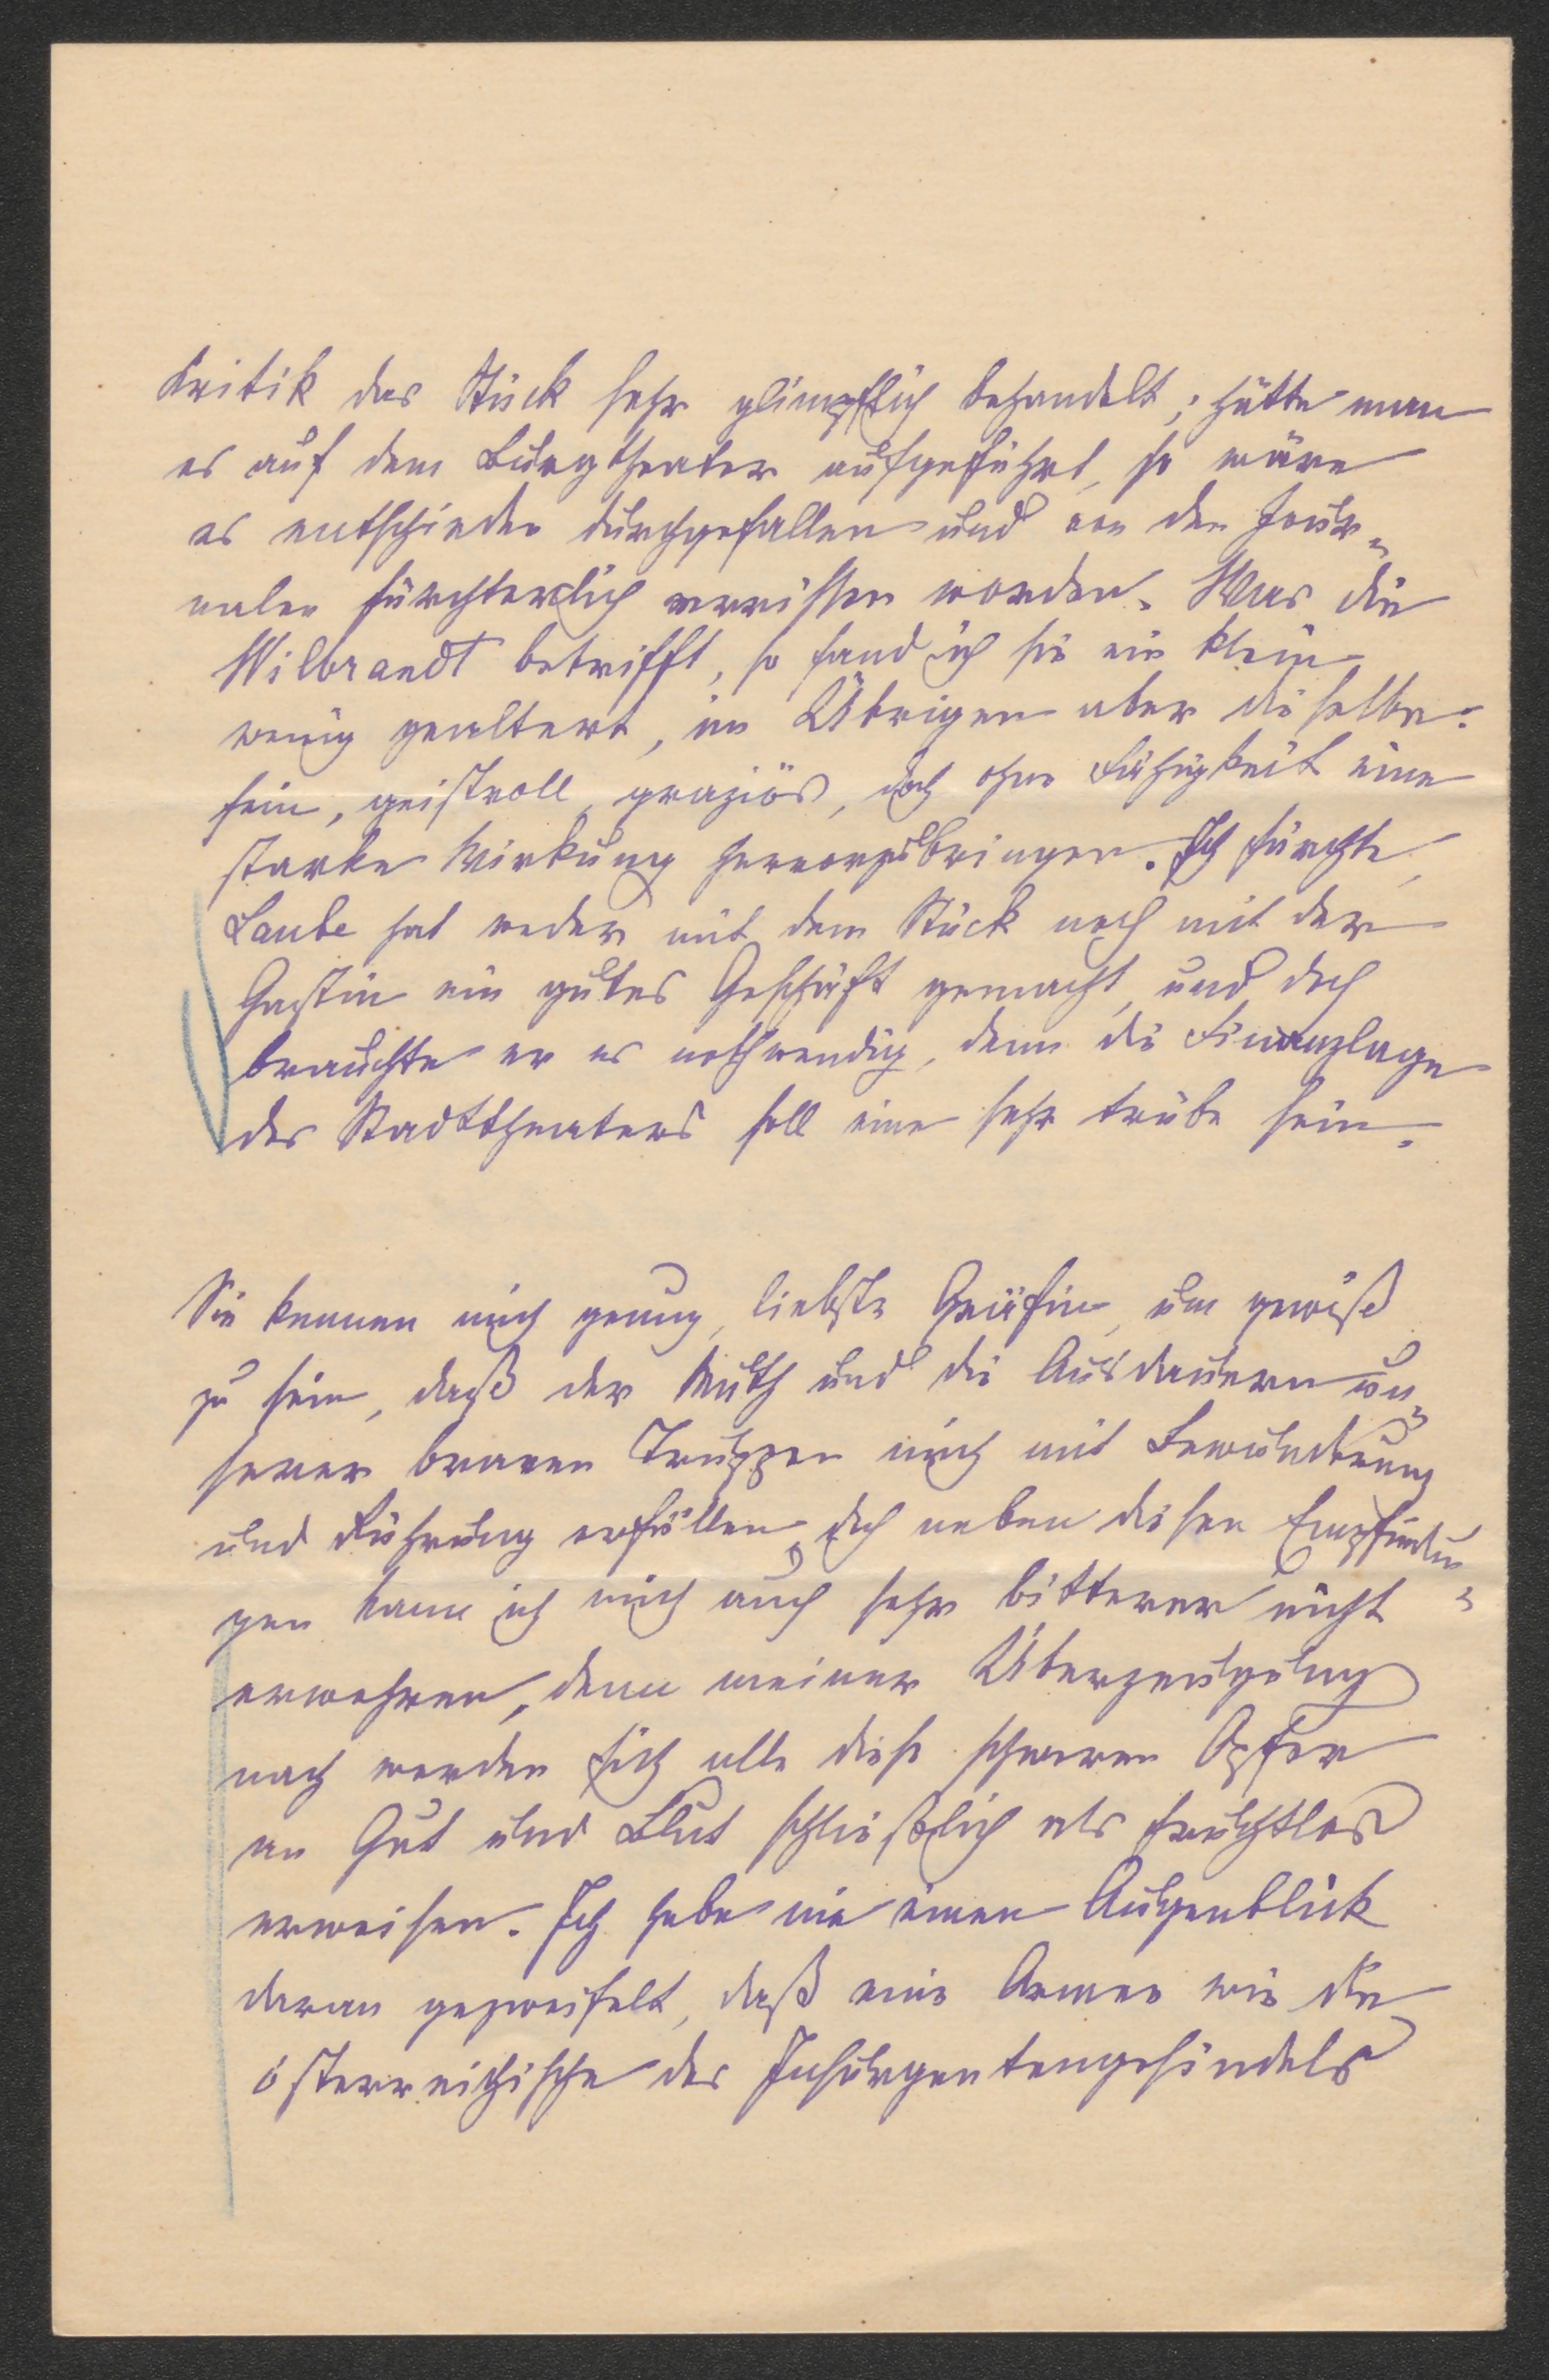 Kritik das Stück sehr glimpflich behandelt; hätte man
es auf dem Burgtheater aufgeführt, so wäre
es entschieden durchgefallen und von den Jour=
nalen fürchterlich verrissen worden. Was die
Wilbrandt betrifft, so fand ich sie ein klein
wenig gealtert, im Übrigen aber dieselbe:
fein, geistvoll, graziös, doch ohne Fähigkeit eine
starke Wirkung hervorzubringen. Ich fürchte,
Laube hat weder mit dem Stück noch mit der
Gastin ein gutes Geschäft gemacht, und doch
brauchte er es nothwendig, denn die Finanzlage
des Stadttheaters soll eine sehr trübe sein.
Sie kennen mich genug, liebste Gräfin, um gewiß
zu sein, daß der Muth und die Ausdauern un=
serer braven Truppen mich mit Bewunderung
und Rührung erfüllen, doch neben diesen Empfindun=
gen kann ich mich auch sehr bitterer nicht
erwehren, denn meiner Überzeugung
nach werden sich alle diese schweren Opfer
an Gut und Blut schließlich als fruchtlos
erweisen. Ich habe nie einen Augenblick
daran gezweifelt, daß eine Armee wie die
österreichische des Insurgentengesindels